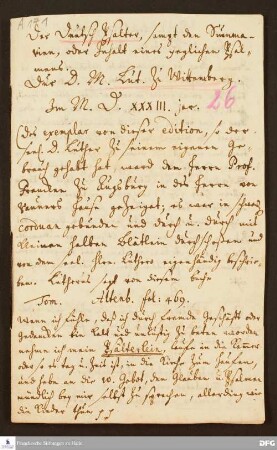 A 141
Der Deutsch Psalter, sampt den Summa-
rien, oder Inhalt eines jeglichen Psal-
mens.
Dur D. M. Lut. Zu Wittenberg.
Im M. D. XXXIII. jar.
26
(das exemplar von dieser edition, so der
D. Luther zu seinem eigenen Ge-
brauch gehabt hat, ward dem Herrn Prof.
zu Augsburg in des Herrn von
Hause gezeiget, es war in schwarz
corduan gebunden und durch u. durch mit
kleinen halben Blätlein durchschossen und
von dem seel. Hrn. Luthero eigenhändig beschrie-
ben. Lutherus sagt von diesem buch
Tom. Altenb. fol. 469.
Wenn ich fühle, daß ich durch fremde Geschäfft oder
Gedancken bin kalt und unlustig zu beten worden
nehme ich mein Psälterlein, lauffe in die Kammer
oder so es tag u. Zeit ist, in die Kirche zum hauffen,
und hebe an die 10. Gebot, den Glauben u. Psalmen
mündlich bey mir selbst zu sprechen, allerding wie
die Kinder thun
DFG